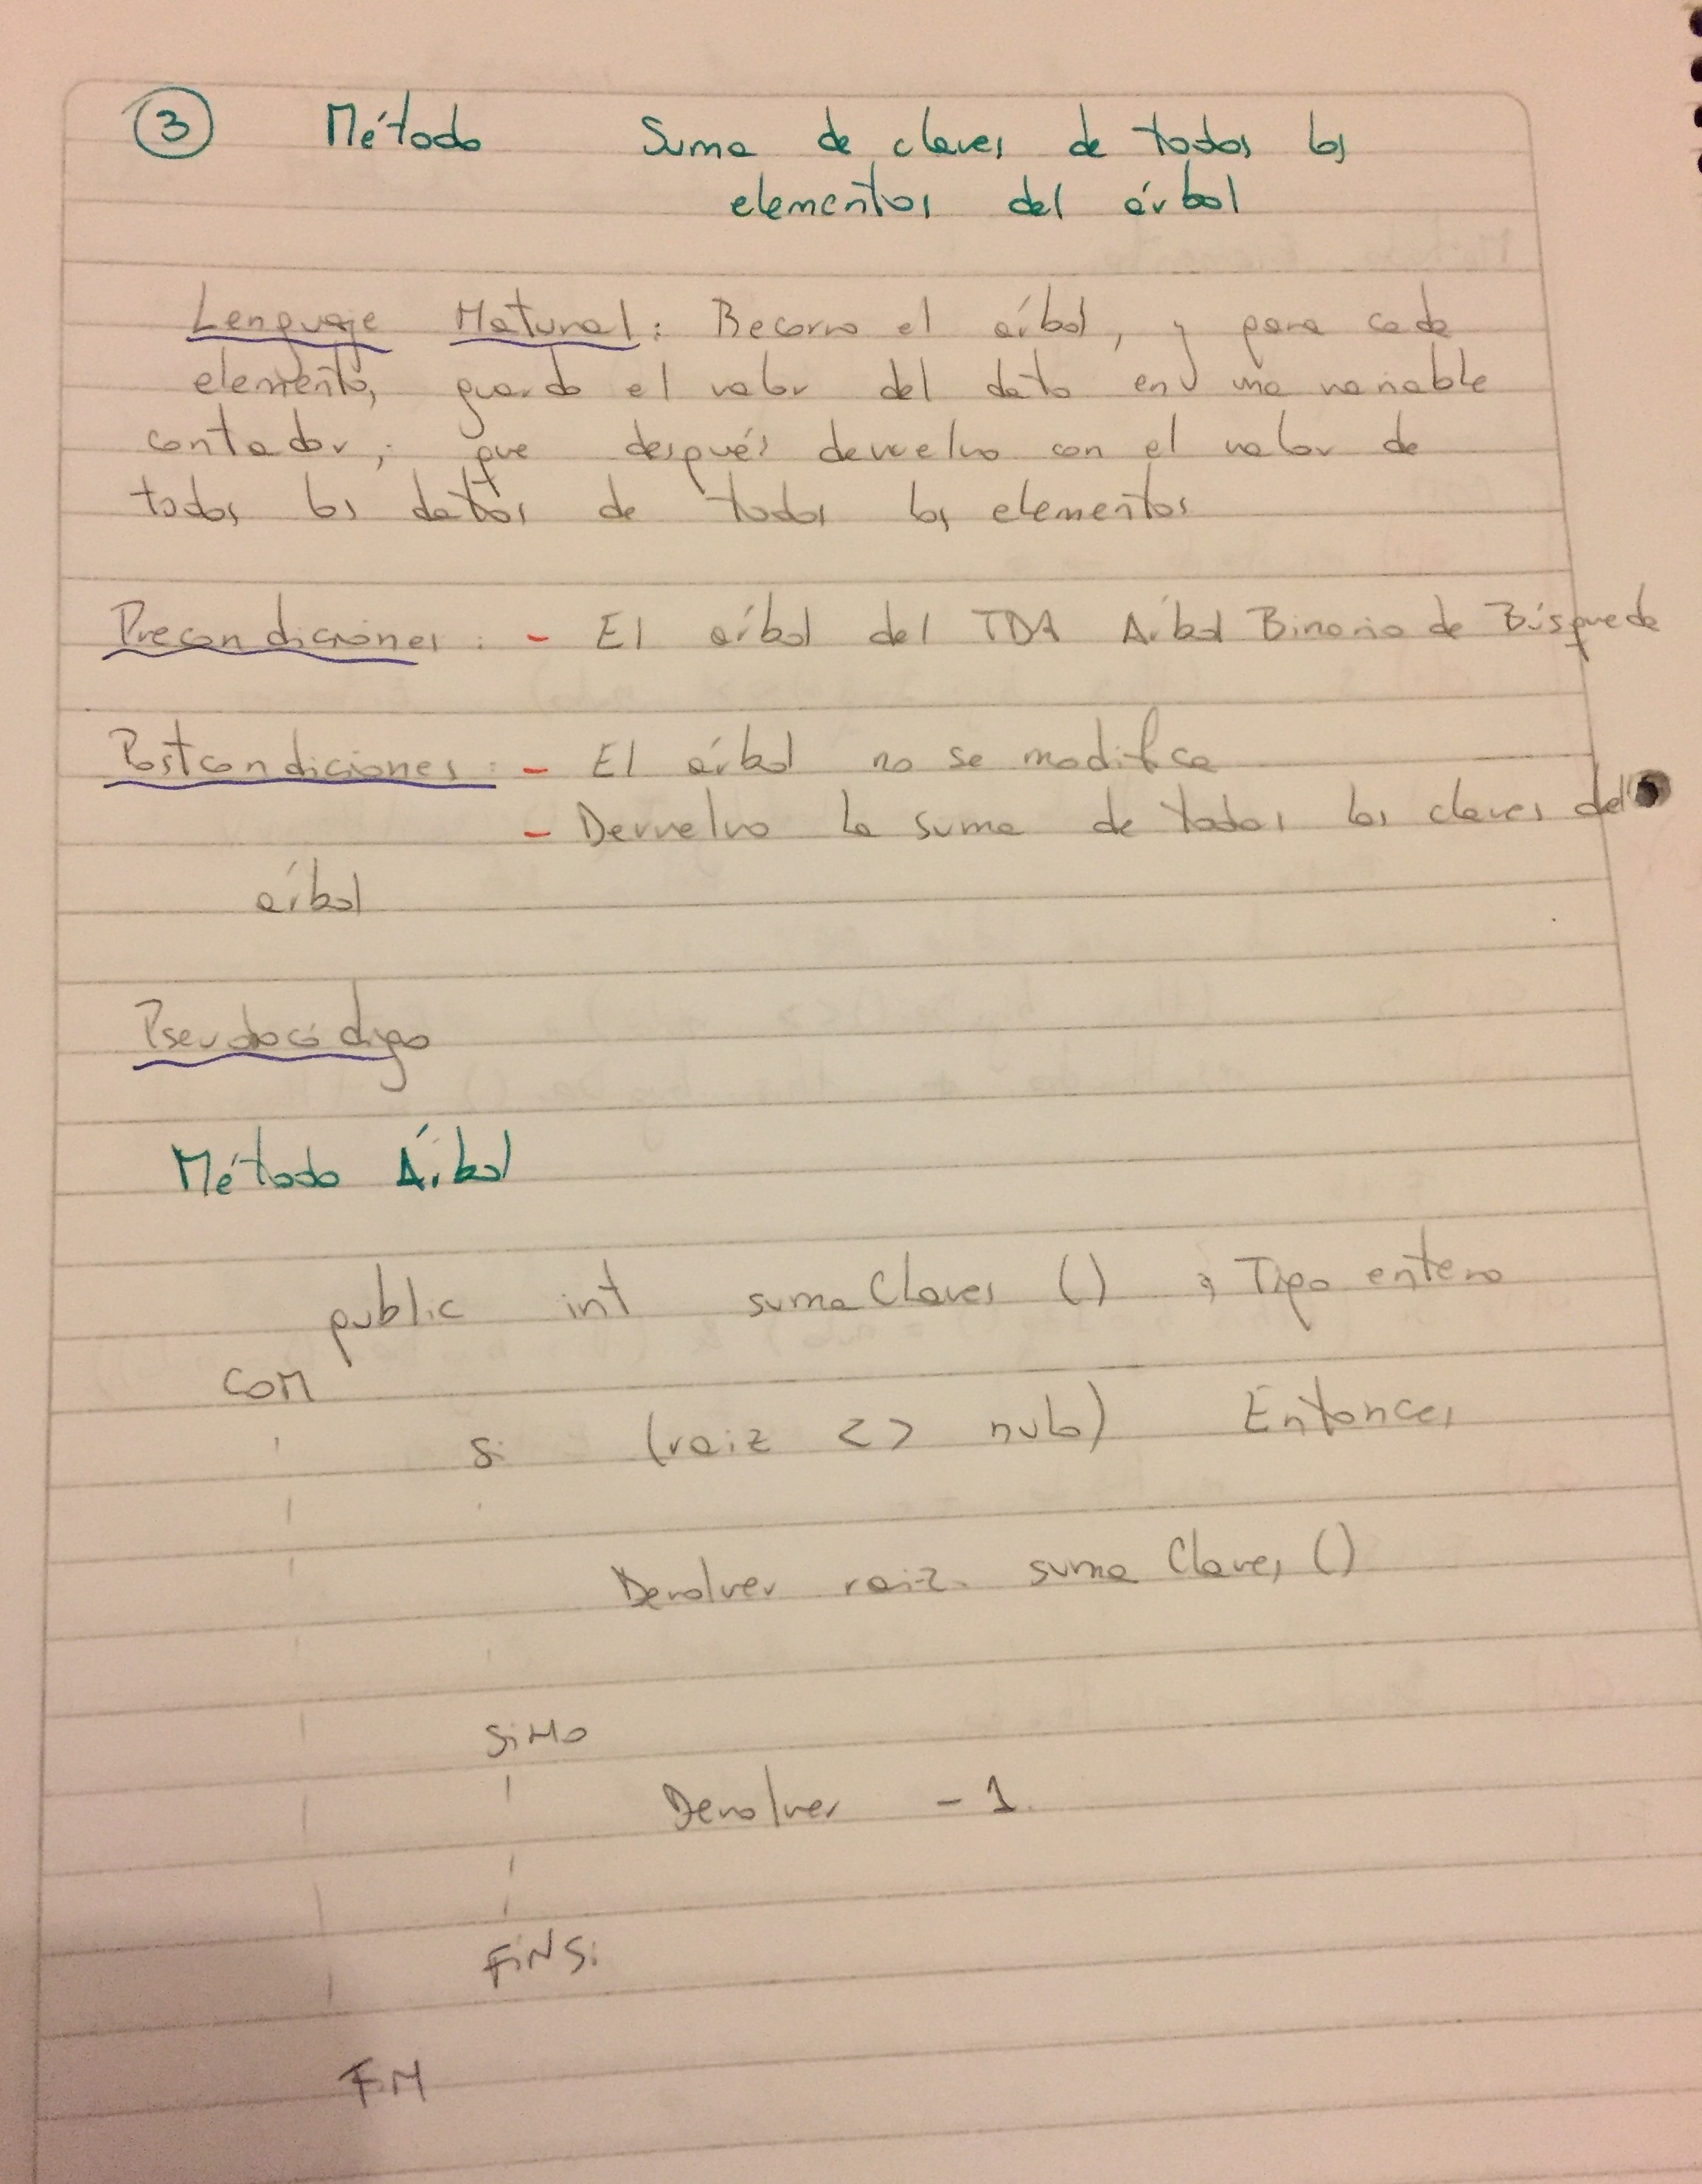 3 Método Suma de claves de todos los
elementos del árbol
Lenguaje Natural: Recorro el árbol, y para cada
elemento, guardo el valor del dato en una variable
contador, que después devuelvo con el valor de
todos los datos de todos los elementos
Precondiciones: - El árbol del TDA Árbol Binario de Búsqueda
Postcondiciones: - El árbol no se modifica
- Devuelvo la suma de todos las claves del
árbol
Pseudocódigo
Método Árbol
public int sumaClaves () : Tipo entero
COM
Si (raiz <> nulo) Entonces
Devolver raiz. suma Claves ()
SiNo
Devolver -1
FiNSi
FiN